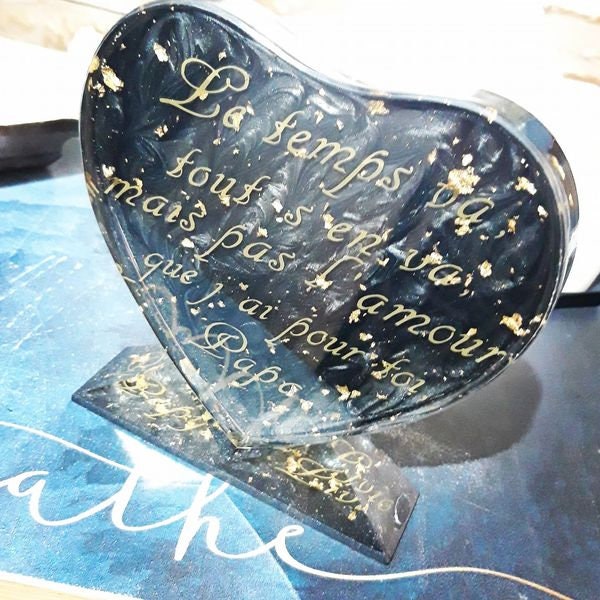 Le temps va,
tout s'en va,
mais pas l'amour
que j'ai pour toi
Papa...
athe